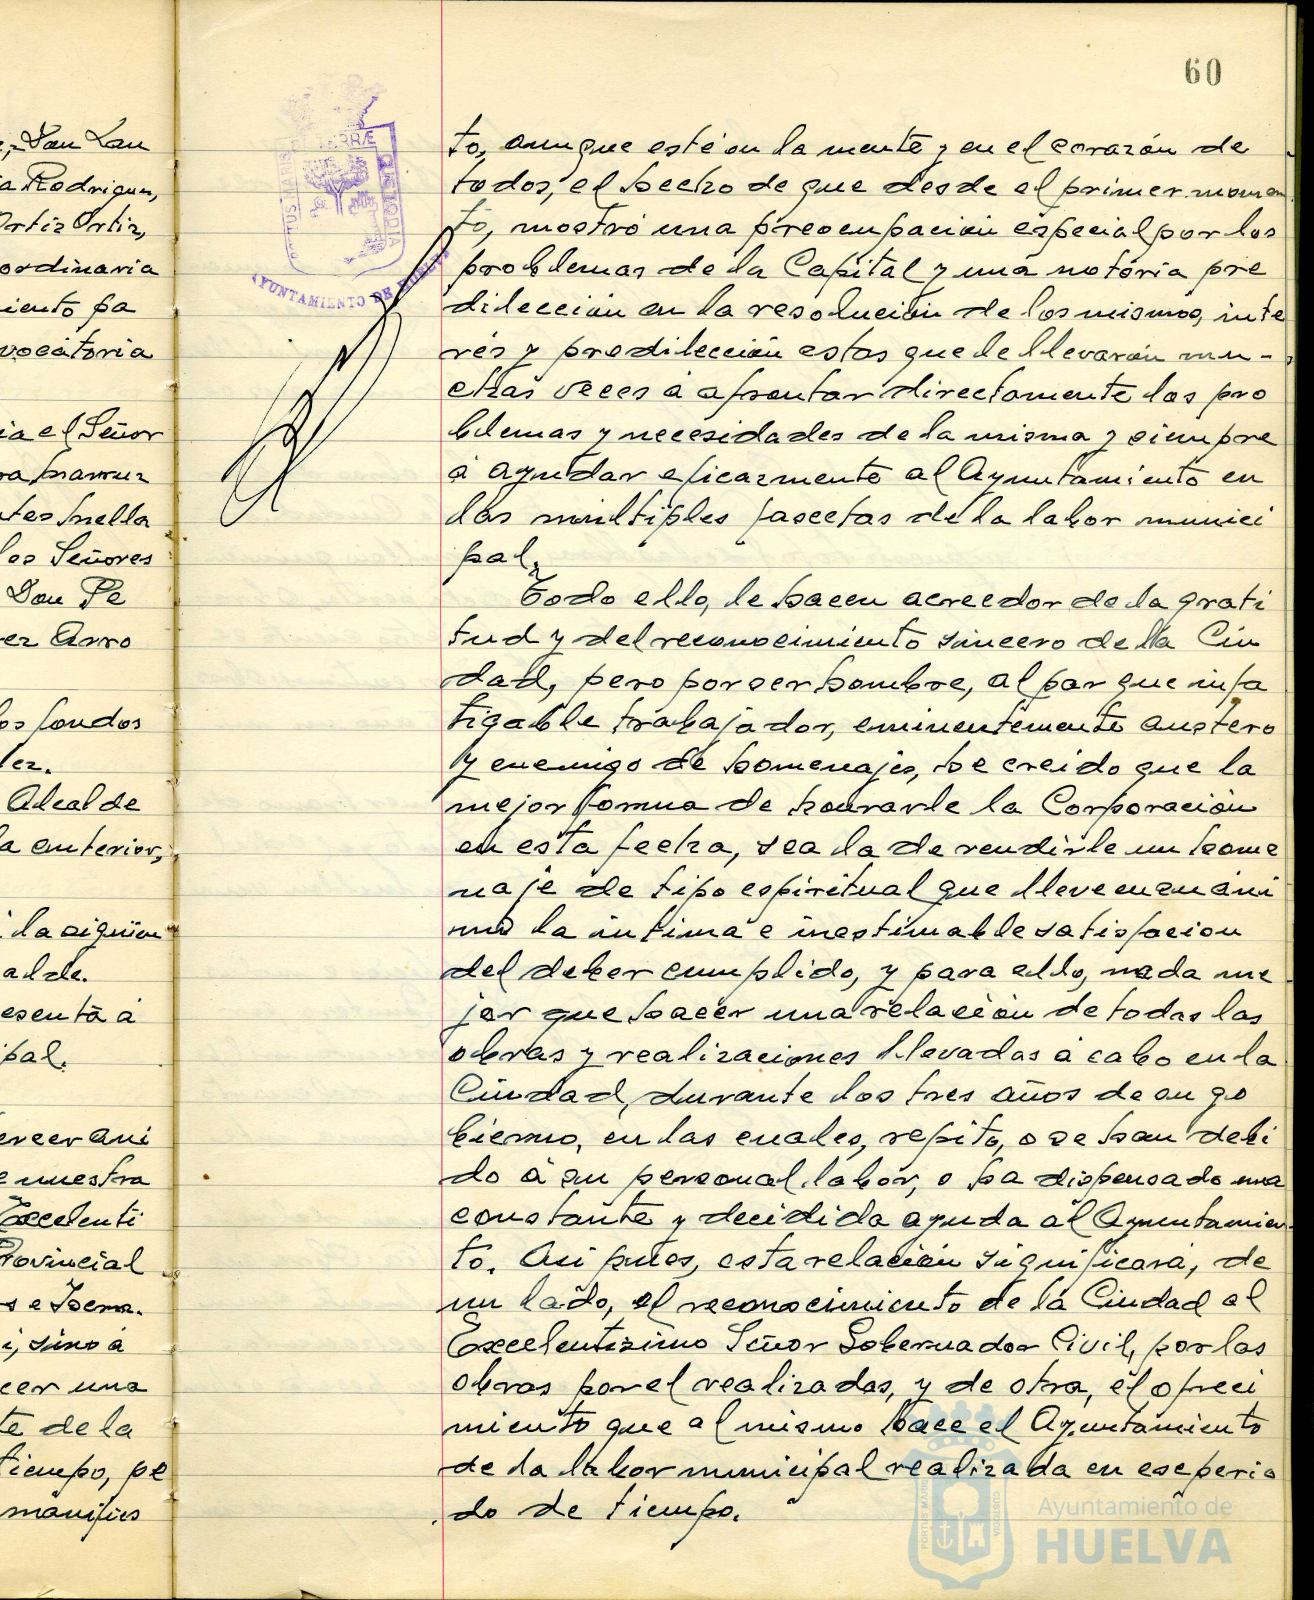 60
e, Don Lau
a Rodriguez,
Ortiz Ortiz,
ordinaria
iento pa
vocatoria
ia el Señor
ra
ntes
los Señores
Don Pe
ez Arro
los fondos
lez.
Alcalde
la anterior,
la siguien
alde.
esenta á
ipal.
ercer ani
e nuestra
Excelenti
Provincial
i, sino á
cer una
te de la
tiempo, pe
manifies
PORTUS MARIS ET TERRÆ CUSTODIA
AYUNTAMIENTO DE HUELVA
to, aunque esté en la mente y en el corazón de
todos, el hecho de que desde el primer momen
to, mostró una preocupación especial por los
problemas de la Capital y una notória pre
dilección en la resolución de los mismos, inte
rés y predilección estas que le llevarón mu-
chas veces á afrontar directamente los pro
blemas y necesidades de la misma y siempre
á ayudar eficazmente al Ayuntamiento en
las múltiples fascetas de la labor munici
pal.
Todo ello, le hacen acreedor de la grati
tud y del reconocimiento sincero de la Ciu
dad, pero por ser hombre, al par que infa
tigable trabajador, eminentemente austero
y enemigo de homenajes, he creido que la
mejor forma de honrarle la Corporación
en esta fecha, sea la de rendirle un home
naje de tipo espiritual que lleve en su áni
mo la intima é inestimable satisfacion
del deber cumplido, y para ello, nada me
jor que hacer una relación de todas las
obras y realizaciones llevadas á cabo en la
Ciudad, durante los tres años de su go
bierno, en las cuales, repito, o se han debi
do á su personal labor, o ha dispensado una
constante y decidida ayuda al Ayuntamien
to. Asi pues, esta relación significará, de
un lado, el reconocimiento de la Ciudad al
Excelentisimo Señor Gobernador Civil, por las
obras por el realizadas, y de otra, el ofreci
miento que al mismo hace el Ayuntamiento
de la labor municipal realizada en ese perio
do de tiempo.
PORTUS MARIS CUSTODIA
Ayuntamiento de
HUELVA